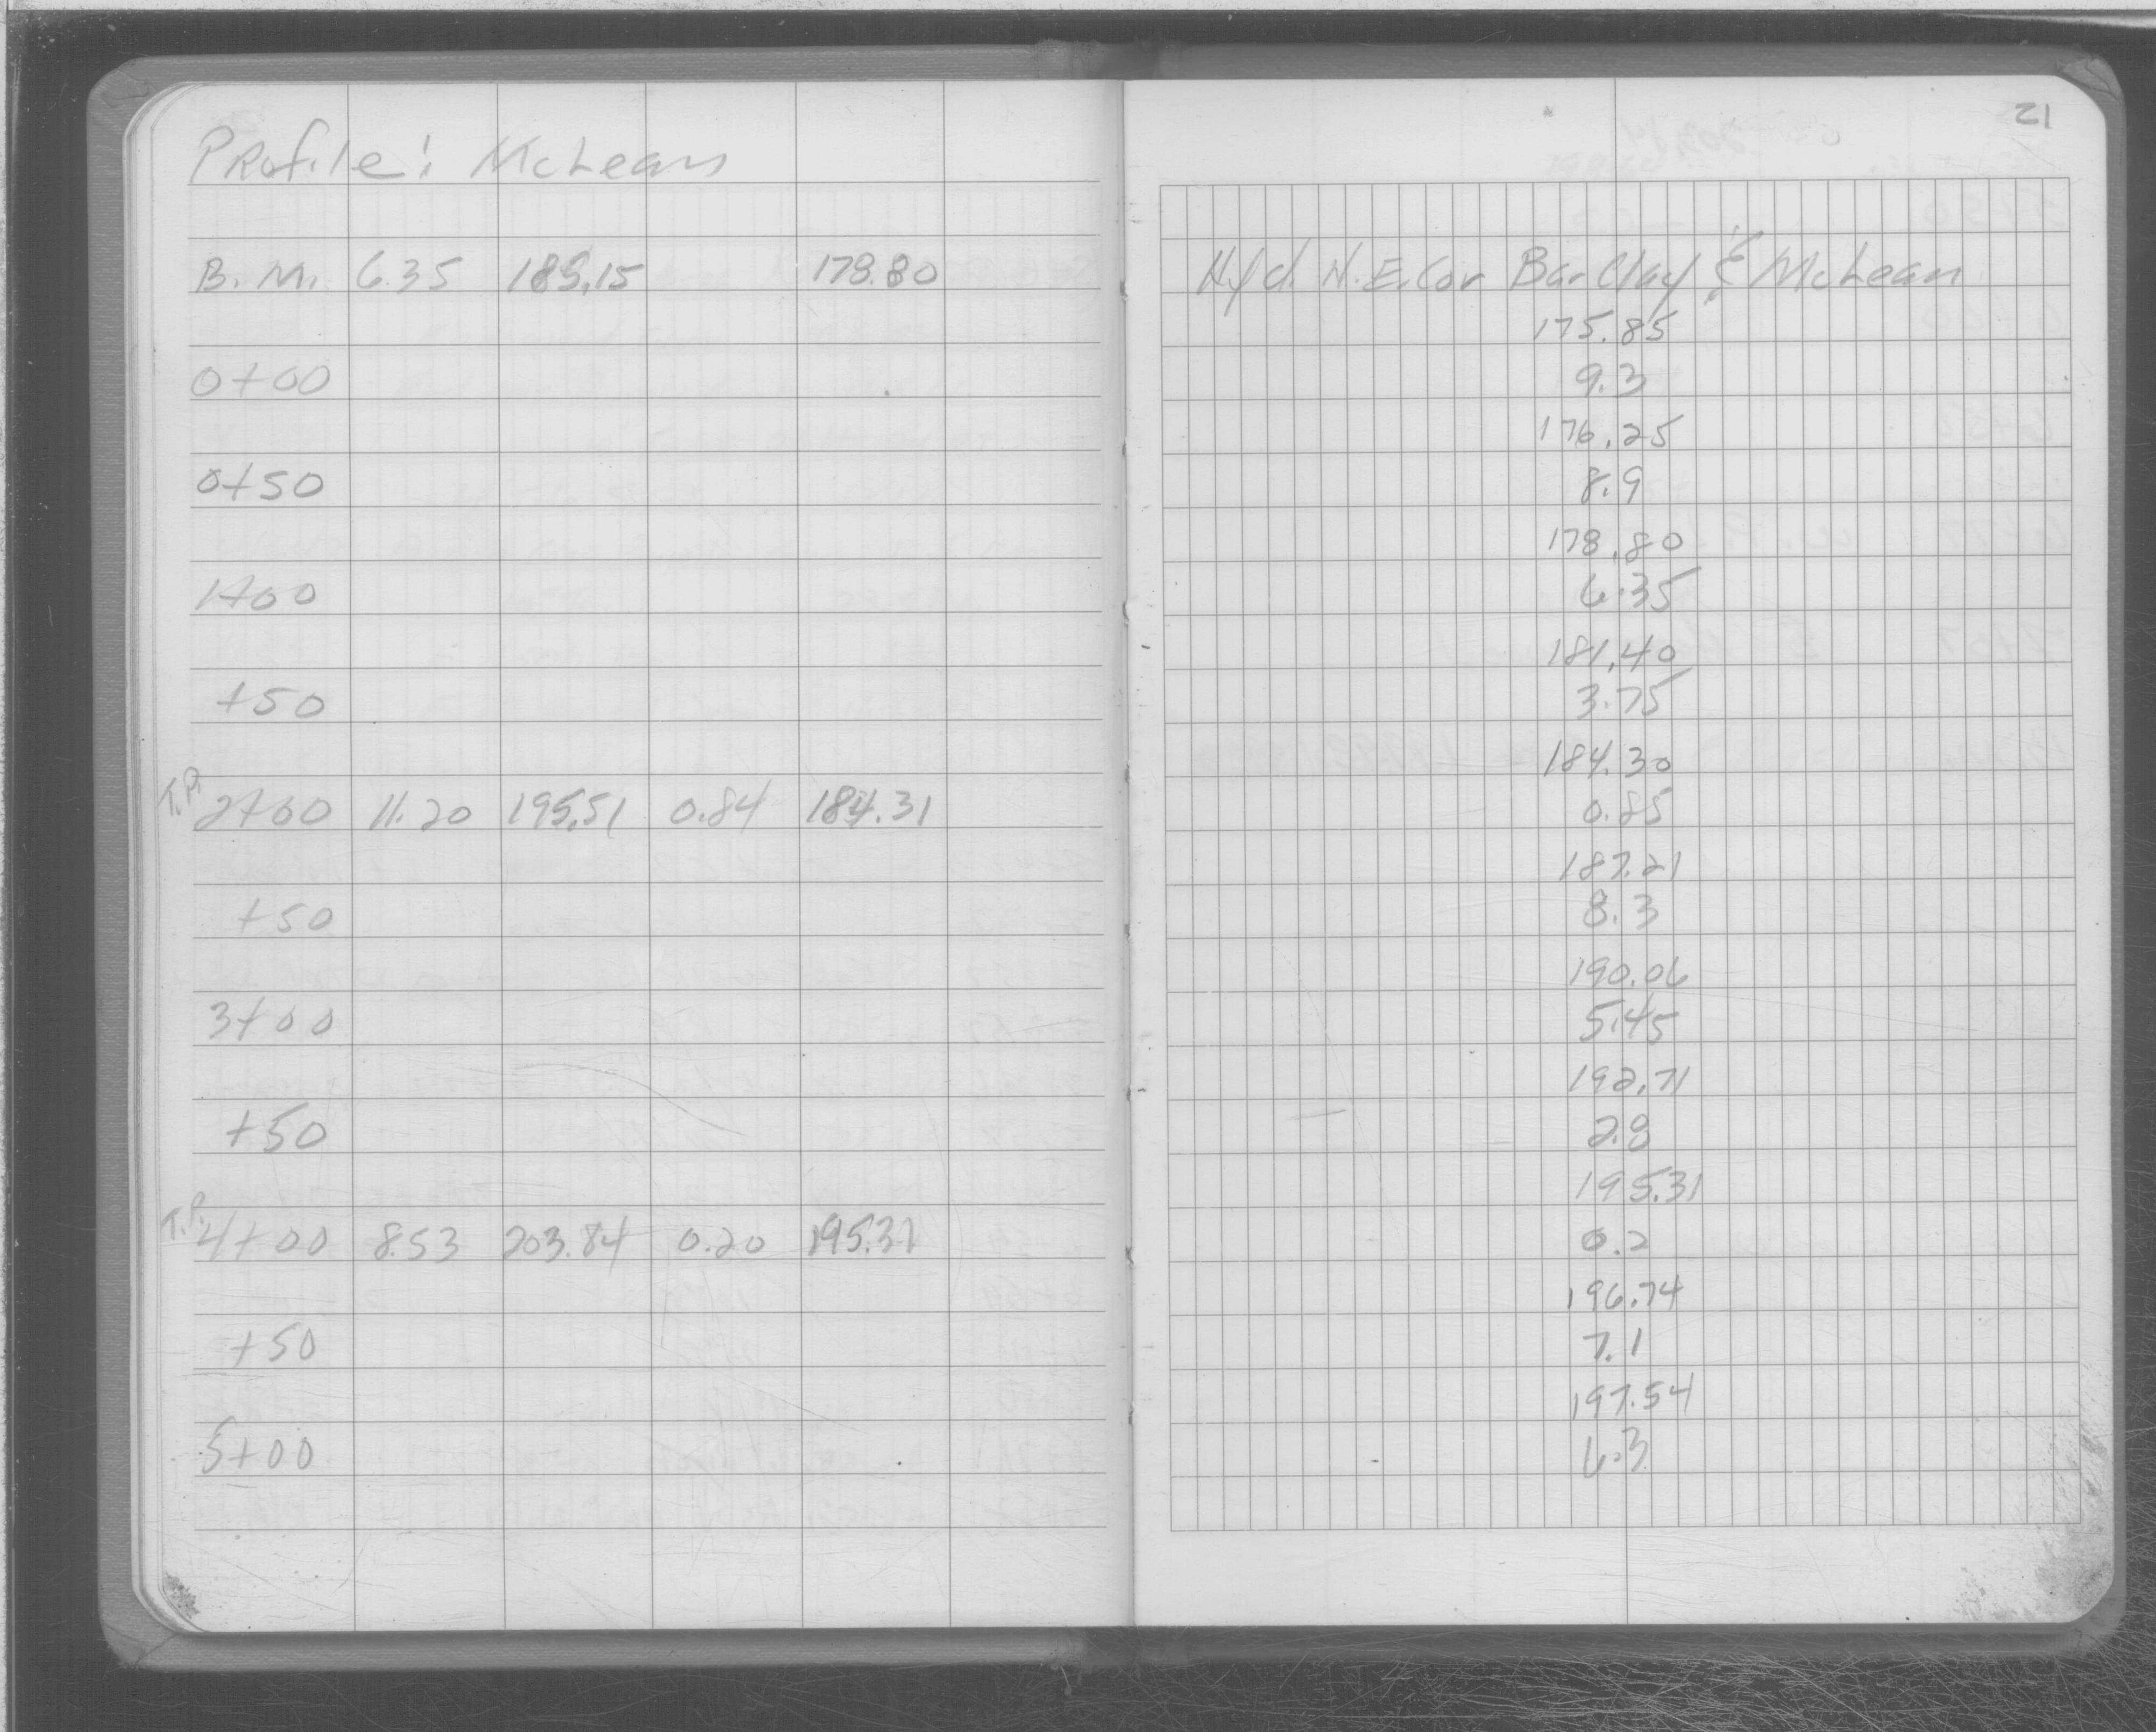 Profile: McLean
B.M. 6.35 185.15 178.80
0+00
0+50
1+00
+50
T.P. 2+00 11.20 195.51 0.84 184.31
+50
3+00
+50
T.P. 4+00 8.53 203.84 0.20 195.31
+50
5+00
21
Hyd. N.E. Cor BarClay & McLean
175.85
9.3
176.25
8.9
178.80
6.35
181.40
3.75
184.30
0.85
187.21
8.3
190.06
5.45
192.71
2.8
195.31
0.2
196.74
7.1
197.54
6.3